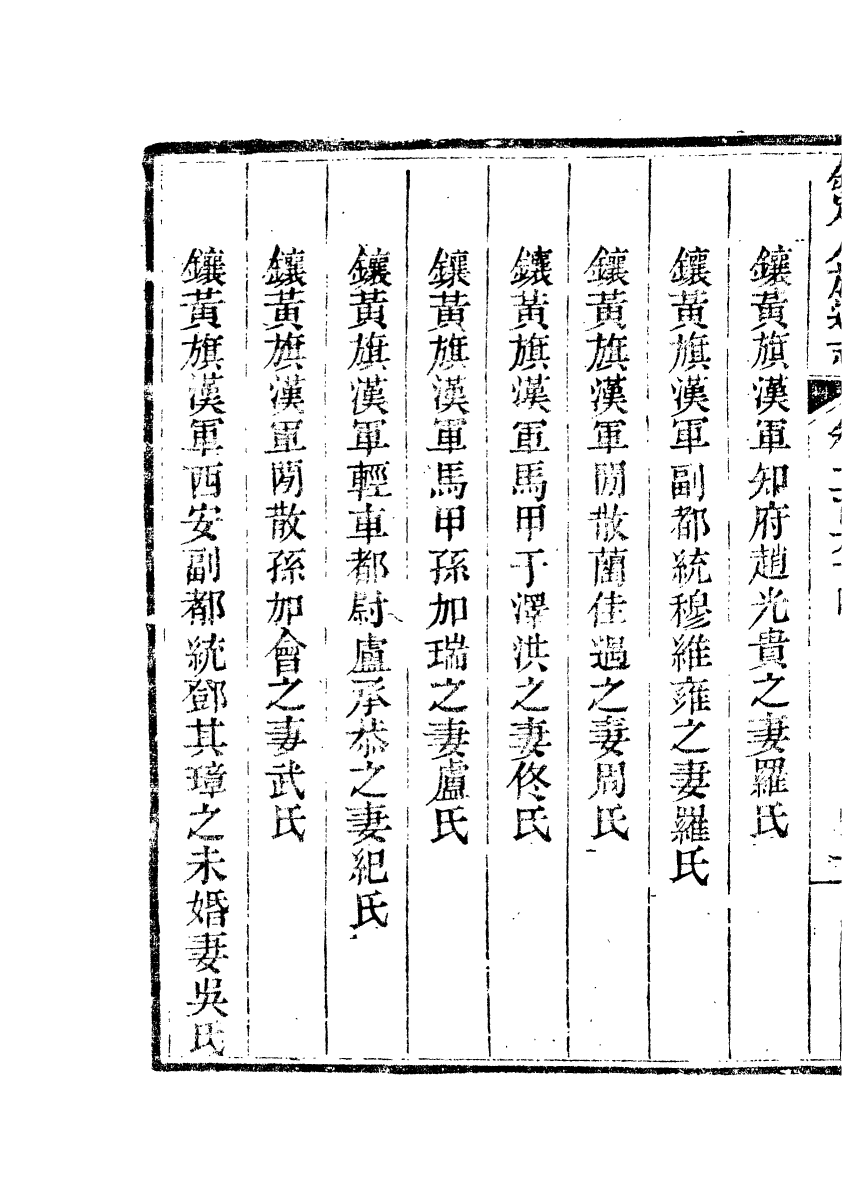 鑲黃旗漢軍知府趙光貴之妻羅氏
鑲黃旗漢軍副都統穆維雍之妻羅氏
鑲黃旗漢軍閒散蘭佳遇之妻周氏
鑲黃旗漢軍馬甲于澤洪之妻佟氏
鑲黃旗漢軍馬甲孫加瑞之妻盧氏
鑲黃旗漢軍輕車都尉盧承恭之妻紀氏
鑲黃旗漢軍閒散孫加會之妻武氏
鑲黃旗漢軍西安副都統鄧其璋之未婚妻吳氏